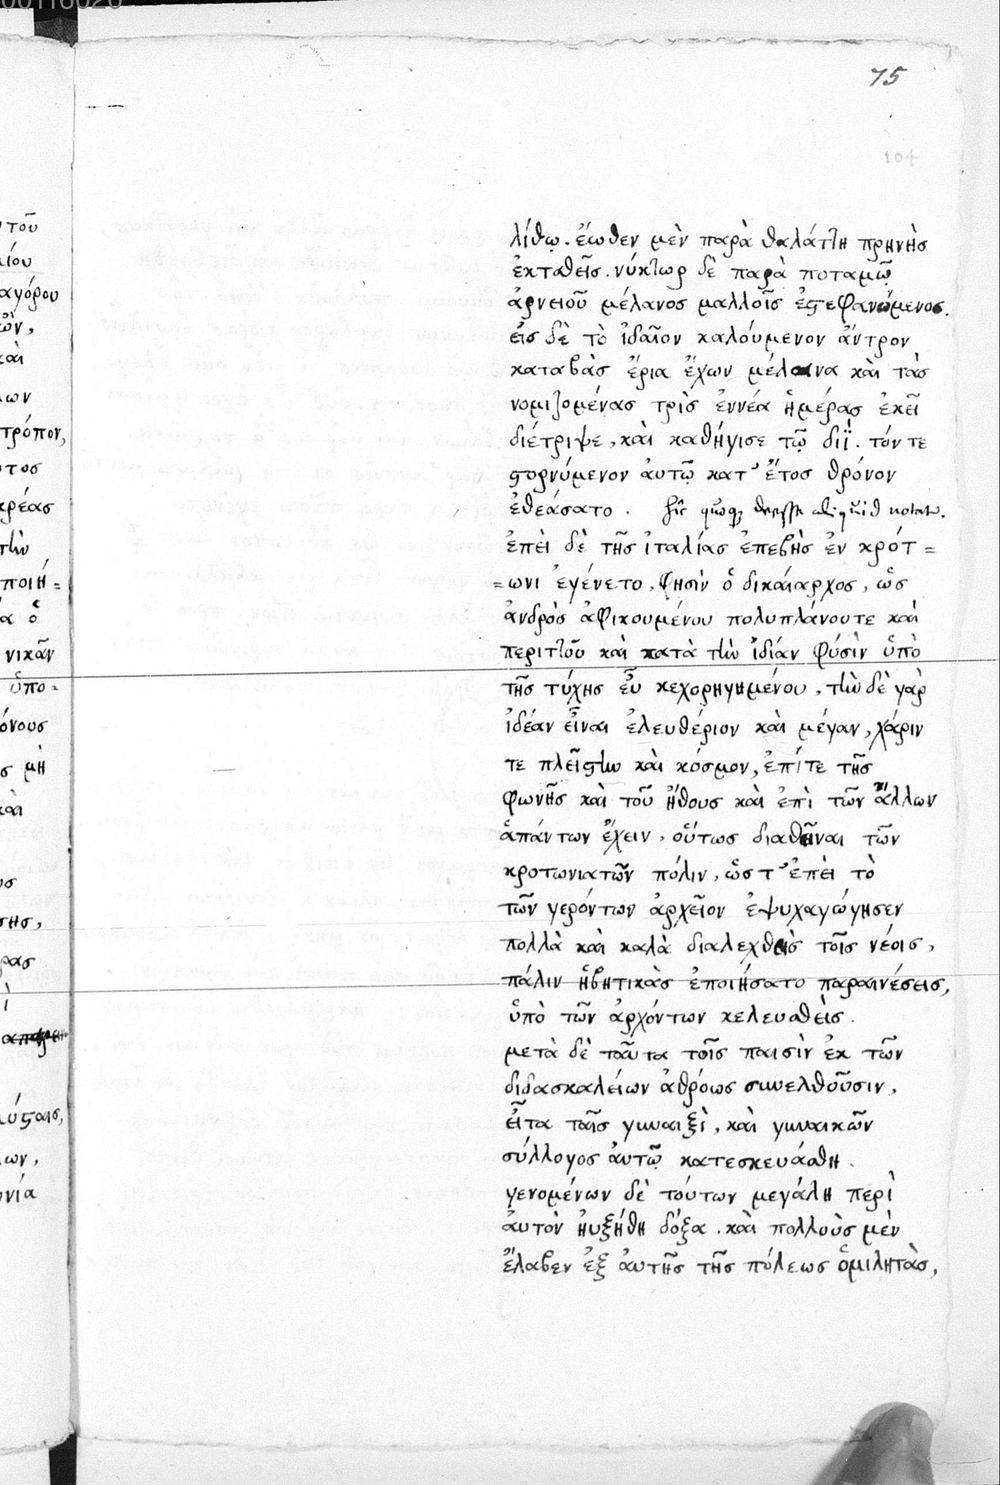 00116020
75
104
λίθῳ. ἕωθεν μὲν παρὰ θαλάττη πρηνὴς
ἐκταθεῖς. νύκτωρ δὲ παρὰ ποταμῶ
ἀρνειοῦ μέλανος μαλλοῖς ἐστεφανώμενος.
εἰς δὲ τὸ ἰδαῖον καλούμενον ἄντρον
καταβὰς ἔρια ἔχων μέλανα καὶ τὰς
νομιζομένας τρὶς ἐννέα ἡμέρας ἐκεῖ
διέτριψε, καὶ καθήγισε τῶ διΐ. τόν τε
στορνύμενον ἀυτῶ κατ' ἔτος θρόνον
ἐθεάσατο. hic quoque deesse aliquid notato.
ἐπεὶ δὲ τῆς ἰταλίας ἐπεβὴς ἐν κρότ=
=ωνι ἐγένετο, φησὶν ὁ δικάιαρχος, ὡς
ἀνδρὸς ἀφικουμένου πολυπλάνουτε καὶ
περιττοῦ καὶ κατὰ τὴν ἰδίαν φύσιν ὑπὸ
τῆς τύχης εὖ κεχορηγημένου, τὴν δὲ γαρ
ἰδέαν εἶναι ἐλευθέριον καὶ μέγαν, χάριν
τε πλεῖστην καὶ κόσμον, ἐπίτε τῆς
φωνῆς καὶ τοῦ ἤθους καὶ ἐπὶ τῶν ἄλλων
ἁπάντων ἔχειν, οὕτως διαθῆναι τῶν
κροτωνιατῶν πόλιν, ὥστ' ἐπεὶ τὸ
τῶν γερόντων ἀρχεῖον ἐψυχαγώγησεν
πολλὰ καὶ καλὰ διαλεχθεὶς τοῖς νέοις,
πάλιν ἡβητικὰς ἐποιήσατο παραινέσεις,
ὑπὸ τῶν ἀρχόντων κελευσθείς.
μετὰ δὲ ταῦτα τοῖς παισὶν ἐκ τῶν
διδασκαλείων ἀθρόως συνελθοῦσιν,
εἶτα ταῖς γυναιξὶ, καὶ γυναικῶν
σύλλογος ἀυτῶ κατεσκευάσθη.
γενομένων δὲ τούτων μεγάλη περὶ
ἀυτὸν ἠυξήθη δόξα. καὶ πολλοὺς μὲν
ἔλαβεν ἐξ ἀυτῆς τῆς πόλεως ὁμιλητὰς,